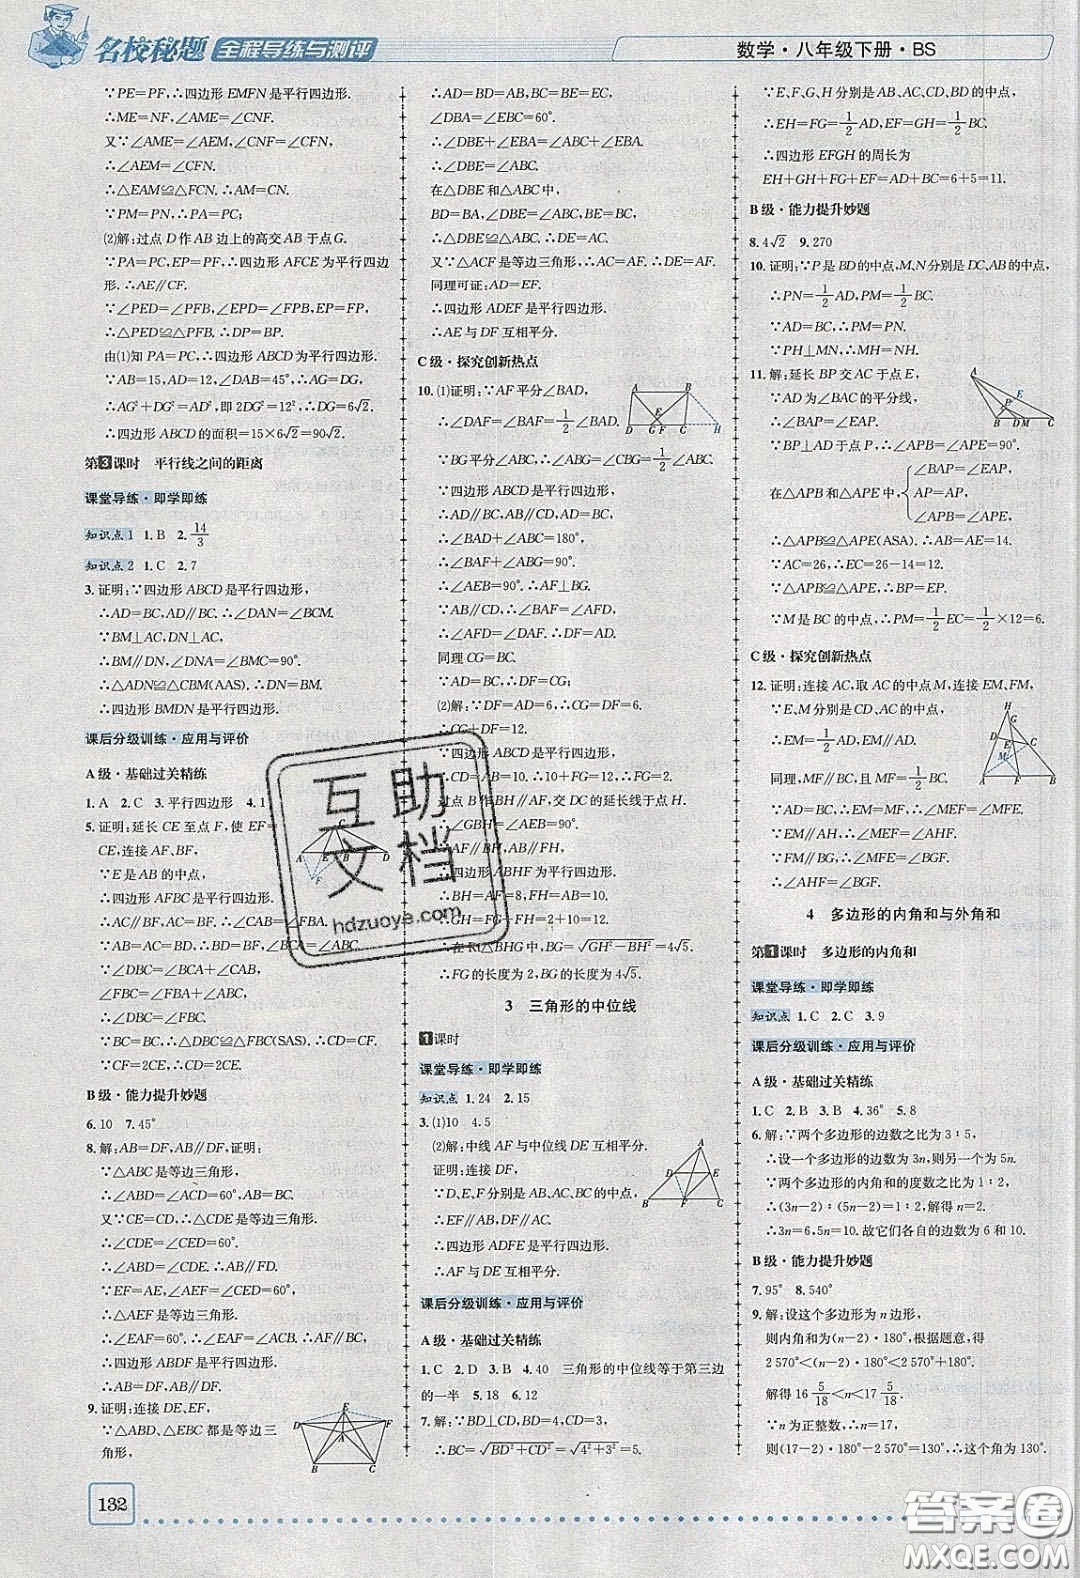 名校秘题 全程导练与测评
数学·八年级下册·BS
∵PE=PF,∴四边形EMFN是平行四边形.
∴ME=NF,∠AME=∠CNF.
又∵∠AME=∠AME=∠CNF,
∴∠AEM=∠CFN.
∴△EAM≌△FCN. ∴AM=CN.
∵PM=PN,∴PA=PC;
(2)解:过点D作AB边上的高交AB于点G.
∵PA=PC,EP=PF,∴四边形AFCE为平行四边
形.∴AE∥CF.
∴∠PED=∠PFB,∠EDP=∠FBP,EP=FP,
∴△PED≌△PFB. ∴DP=BP.
由(1)知PA=PC,∴四边形ABCD为平行四边形.
∵AB=15,AD=12,∠DAB=45°,∴AG=DG.
∴AG²+DG²=AD²,即2DG²=12²,∴DG=6√2.
∴四边形ABCD的面积=15×6√2=90√2.
第3课时 平行线之间的距离
课堂导练·即学即练
知识点1 1.B 2.14/3
知识点2 1.C 2.7
3.证明:∵四边形ABCD是平行四边形,
∴AD=BC,AD∥BC. ∴∠DAN=∠BCM.
∵BM⊥AC,DN⊥AC,
∴BM∥DN,∠DNA=∠BMC=90°.
∴△ADN≌△CBM(AAS). ∴DN=BM.
∴四边形BMDN是平行四边形.
课后分级训练·应用与评价
A级·基础过关精练
1.A 2.C 3.平行四边形 4.1
5.证明:延长CE至点F,使EF=
CE,连接AF,BF,
∵E是AB的中点,
∴四边形AFBC是平行四边形.
∴AC∥BF,AC=BF. ∴∠CAB=∠FBA.
∵AB=AC,∴∠ABC=∠ACB,AC=BD.
∵∠DBC=∠BAC+∠ACB,
∠FBC=∠FBA+∠ABC,
∴∠FBC=∠DBC.
∵BC=BC,∴△DBC≌△FBC(SAS). ∴CD=CF.
∵CF=2CE,∴CD=2CE.
B级·能力提升妙题
6.10 7.45°
8.解:AB=DF,AB∥DF,证明:
∵△ABC是等边三角形,
∴∠ABD=∠ACD=60°,AB=BC.
又∵CE=CD,∴△CDE是等边三角形.
∴∠CDE=60°.
∴∠ABD=∠CDE=60°. ∴AB∥DF.
∵EF=AE,∠AEF=∠CED=60°,
∴△AEF是等边三角形.
∴∠EAF=60°. ∴∠EAF=∠ACB. ∴AF∥BC,
∴四边形ABDF是平行四边形.
∴AB=DF. ∴AB=DF,AB∥DF.
9.证明:连接DE,EF,
∵△ABD、△EBC都是等边三
角形,
∴AD=BD=AB,BC=BE=EC.
∠DBA=∠EBC=60°.
∴∠DBE+∠EBA=∠ABC+∠EBA.
∴∠DBE=∠ABC.
在△DBE和△ABC中,
∵BD=BA,∠DBE=∠ABC,BE=BC,
∴△DBE≌△ABC. ∴DE=AC.
又∵△ACF是等边三角形,∴AC=AF. ∴DE=AF.
同理可证:AD=EF.
∴四边形ADEF是平行四边形.
∴AE与DF互相平分.
C级·探究创新热点
10.(1)证明:∵AF平分∠BAD,
∴∠DAF=∠BAF=1/2∠BAD.
∵BG平分∠ABC,∴∠ABG=∠CBG=1/2∠ABC.
∵四边形ABCD是平行四边形,
∴AD∥BC,AB∥CD,AD=BC.
∴∠BAD+∠ABC=180°,
∴∠BAF+∠ABG=90°.
∴∠AEB=90°. ∴AF⊥BG.
∵AB∥CD,∴∠BAF=∠AFD,
∴∠AFD=∠DAF. ∴DF=AD.
同理CG=BC.
∵AD=BC,∴DF=CG;
(2)解:∵DF=AD=6,∴CG=DF=6.
∴CG+DF=12.
∵四边形ABCD是平行四边形,
∴CD=AB=10. ∴10+FG=12. ∴FG=2.
过点B作BH∥AF,交DC的延长线于点H.
∴∠GBH=∠AEB=90°.
∵AF∥BH,AB∥FH,
∴四边形ABHF为平行四边形.
∴BH=AF=8,FH=AB=10.
∴GH=FG+FH=2+10=12.
∴在Rt△BHG中,BG=√(GH²−BH²)=4√5.
∴FG的长度为2,BG的长度为4√5.
3 三角形的中位线
1课时
课堂导练·即学即练
知识点 1.24 2.15
3.(1)10 4.5
(2)解:中线AF与中位线DE互相平分.
证明:连接DF,
∵D、E、F分别是AB、AC、BC的中点,
∴EF∥AB,DF∥AC.
∴四边形ADFE是平行四边形.
∴AF与DE互相平分.
课后分级训练·应用与评价
A级·基础过关精练
1.C 2.D 3.B 4.40 三角形的中位线等于第三边
的一半 5.18 6.12
7.解:∵BD⊥CD,BD=4,CD=3,
∴BC=√(BD²+CD²)=√(4²+3²)=5.
∵E、F、G、H分别是AB、AC、CD、BD的中点,
∴EH=FG=1/2AD,EF=GH=1/2BC.
∴四边形EFGH的周长为
EH+GH+FG+EF=AD+BC=6+5=11.
B级·能力提升妙题
8.4√2 9.270
10.证明:∵P是BD的中点,M、N分别是DC、AB的中点,
∴PN=1/2AD,PM=1/2BC.
∵AD=BC,∴PM=PN.
∵PH⊥MN,∴MH=NH.
11.解:延长BP交AC于点E,
∵AD为∠BAC的平分线,
∴∠BAP=∠EAP.
∵BP⊥AD于点P,∴∠APB=∠APE=90°.
在△APB和△APE中,{∠BAP=∠EAP,
AP=AP,
∠APB=∠APE,
∴△APB≌△APE(ASA). ∴AB=AE=14.
∵AC=26,∴EC=26−14=12.
∵△APB≌△APE,∴BP=EP.
∵M是BC的中点,∴PM=1/2EC=1/2×12=6.
C级·探究创新热点
12.证明:连接AC,取AC的中点M,连接EM,FM,
∵E、M分别是CD、AC的中点,
∴EM=1/2AD,EM∥AD.
同理,MF∥BC,且MF=1/2BC.
∵AD=BC,∴EM=MF. ∴∠MEF=∠MFE.
∵EM∥AH,∴∠MEF=∠AHF.
∵FM∥BG,∴∠MFE=∠BGF.
∴∠AHF=∠BGF.
4 多边形的内角和与外角和
第1课时 多边形的内角和
课堂导练·即学即练
知识点 1.C 2.C 3.9
课后分级训练·应用与评价
A级·基础过关精练
1.C 2.B 3.B 4.36° 5.8
6.解:∵两个多边形的边数之比为3∶5,
∴设一个多边形的边数为3n,则另一个为5n.
∵两个多边形的内角和的度数之比为1∶2,
∴(3n−2)∶(5n−2)=1∶2,解得n=2.
∴3n=6,5n=10. 故它们各自的边数为6和10.
B级·能力提升妙题
7.95° 8.540°
9.解:设这个多边形为n边形,
则内角和为(n−2)·180°,根据题意,得
2 570°<(n−2)·180°<2 570°+180°.
解得16 5/18<n<17 5/18.
∵n为正整数,∴n=17,
则(17−2)·180°−2 570°=130°,∴这个内角为130°.
132
互助文档
hdzuoye.com
答案圈
MXQE.COM